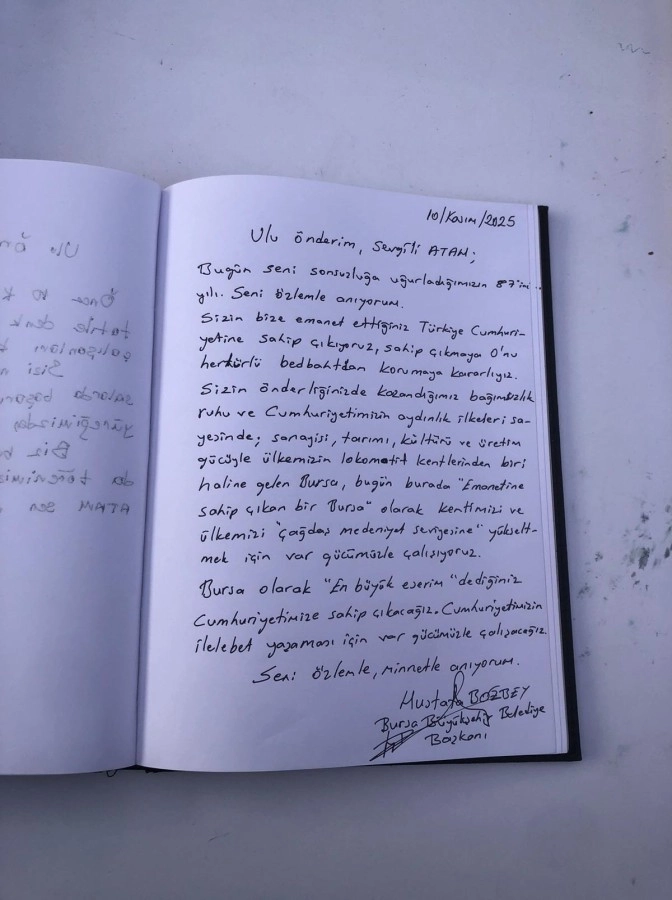 10/Kasım/2025
Ulu önderim, Sevgili ATAM;
Bugün seni sonsuzluğa uğurladığımızın 87'inci
yılı. Seni özlemle anıyorum.
Sizin bize emanet ettiğiniz Türkiye Cumhuri-
yetine sahip çıkıyoruz, sahip çıkmaya O'nu
hertürlü bedbahtdan korumaya kararlıyız.
Sizin önderliğinizde kazandığımız bağımsızlık
ruhu ve Cumhuriyetimizin aydınlık ilkeleri sa-
yesinde; sanayisi, tarımı, kültürü ve üretim
gücüyle ülkemizin lokomotif kentlerinden biri
haline gelen Bursa, bugün burada "Emanetine
sahip çıkan bir Bursa" olarak kentimizi ve
ülkemizi "çağdaş medeniyet seviyesine" yükselt-
mek için var gücümüzle çalışıyoruz.
Bursa olarak "En büyük eserim" dediğiniz
Cumhuriyetimize sahip çıkacağız. Cumhuriyetimizin
ilelebet yaşaması için var gücümüzle çalışacağız.
Seni özlemle, minnetle anıyorum.
Mustafa BOZBEY
Bursa Büyükşehir Belediye
Başkanı